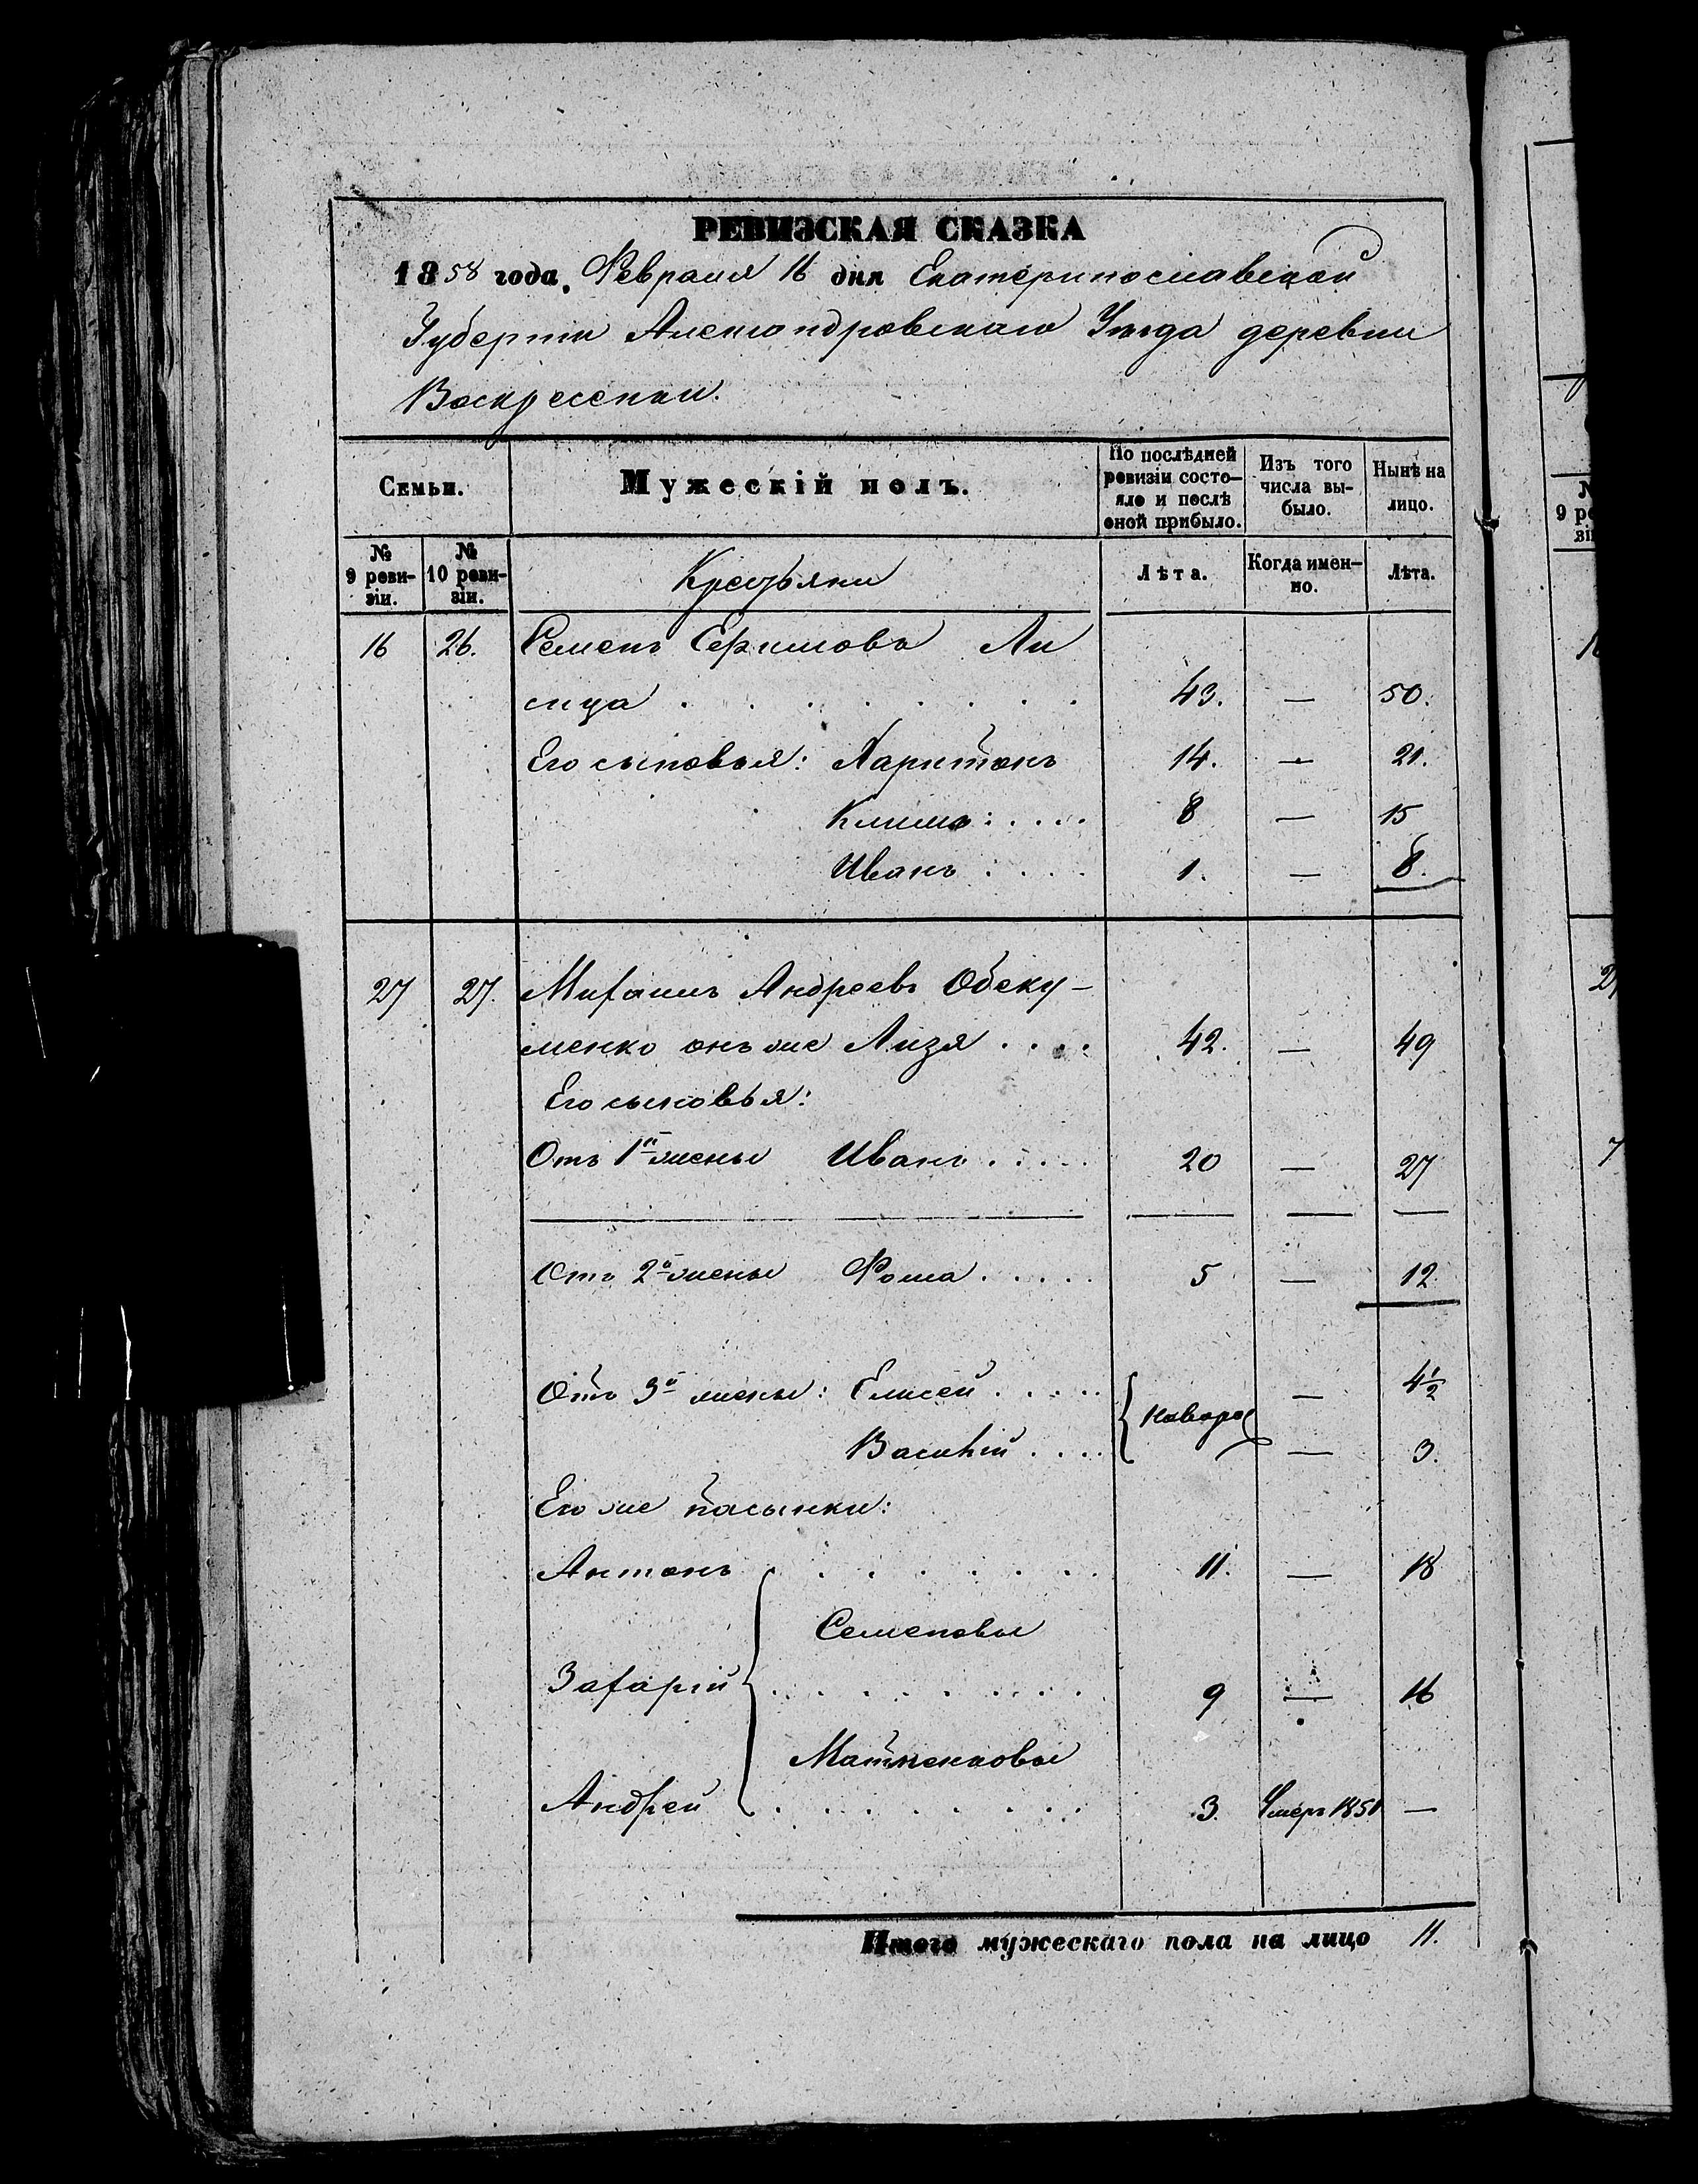 РЕВИЗСКАЯ СКАЗКА
1858 года, Февраля 16 дня Екатеринославской
Губерніи Александровскаго Уѣзда деревни
Воскресенки.
Семьи. Мужескій полъ. По послѣдней ревизіи состояло и послѣ оной прибыло. Изъ того числа выбыло. Нынѣ на лицо.
№ 9 ревизіи. № 10 ревизіи. Крестьяне Лѣта. Когда именно. Лѣта.
16 26. Семенъ Ли
сица . . . . . . . 43. — 50.
Его сыновья: Харитонъ 14. — 21.
Климъ: . . . . 8 — 15
Иванъ . . . . 1. — 8.
27 27. Михаилъ Андреевъ Обеку-
менко онъ же Лизя . . . . 42. — 49
Его сыновья:
Отъ 1й жены Иванъ . . . . . 20 — 27
Отъ 2й жены Фома . . . . . 5 — 12
Отъ 3й жены: Елисей . . . . . — 4½
новорож
Василій . . . . — 3.
Его же пасынки:
Антонъ . . . . . . . 11. — 18
Семеновы
Захарій . . . . . . . . . 9 — 16
Андрей . . . . . . . . 3. Умеръ 1851 —
Итого мужескаго пола на лицо 11.